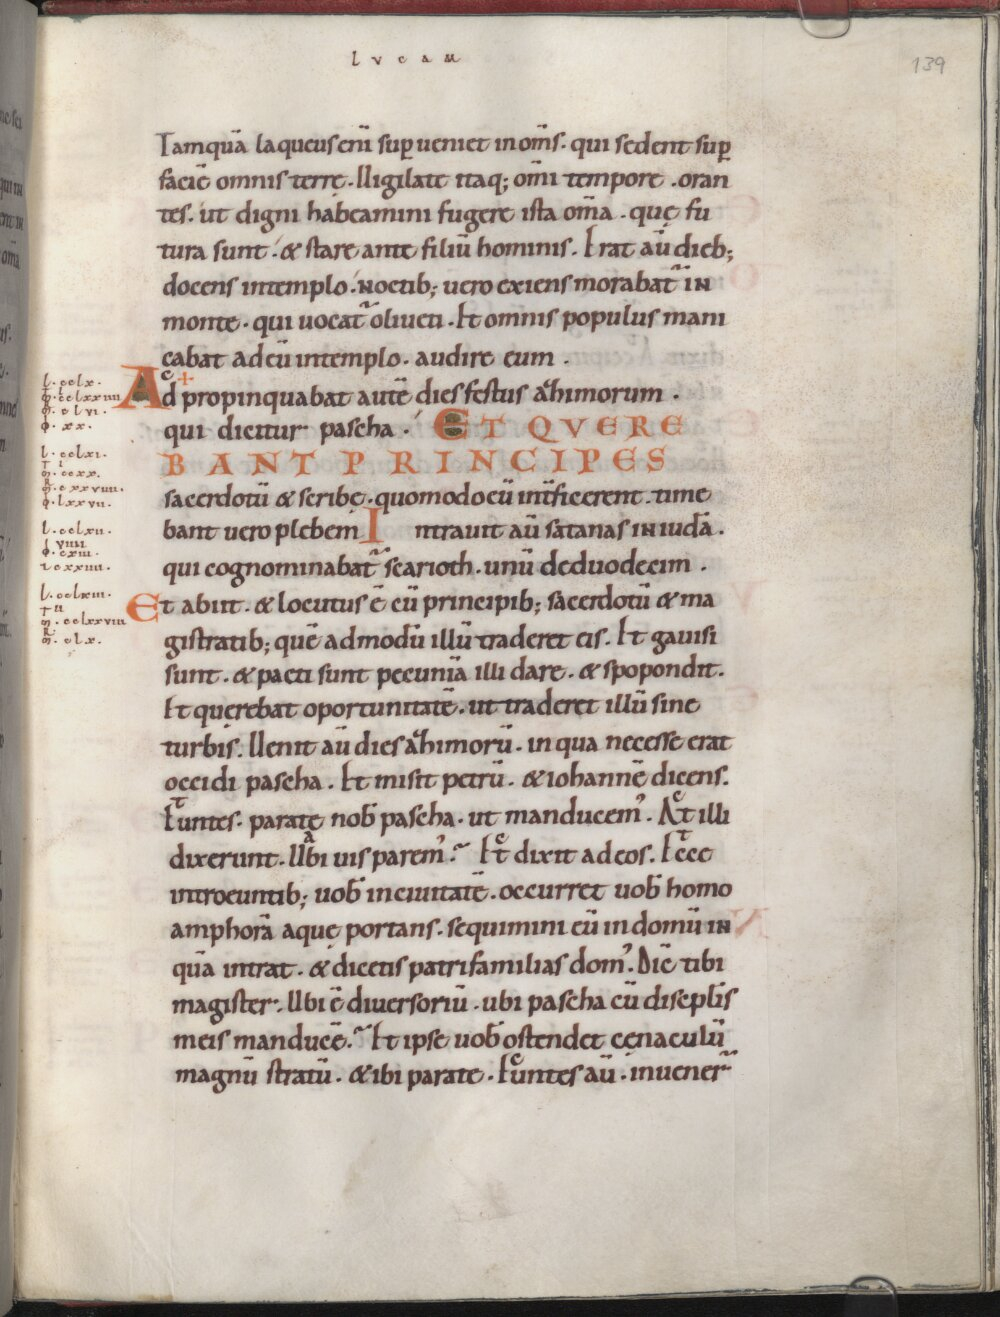 lvcam
139
Tamquā laqueus eni̅ sup̱ueniet in om̅s. qui sedent sup̱
faciē omnis terrę. Uigilate itaq; om̅i tempore. oran
tes. ut digni habeamini fugere ista om̅a. quę fu
tura sunt. & stare ante filiū hominis. Erat au̅ dieb;
docens in templo. noctib; uero exiens morabat᷑ in
monte. qui uocat᷑ oliueti. Et omnis populus mani
cabat ad eū in templo. audire eum.
Adpropinquabat autē dies festus azhimorum.
qui dicitur pascha. ET QVERE
BANT PRINCIPES
sacerdotū & scribę. quomodo eū int̅ficerent. time
bant uero plebem Intrauit au̅ satanas in iudā.
qui cognominabat᷑ scarioth. unū de duodecim.
Et abiit. & locutus ē cū principib; sacerdotū & ma
gistratib; quē admodū illū traderet eis. Et gauisi
sunt. & pacti sunt pecuniā illi dare. & spopondit.
Et querebat oportunitatē. ut traderet illū sine
turbis. Uenit au̅ dies azhimorū. in qua necesse erat
occidi pascha. Et misit petrū. & iohannē dicens.
Euntes. parate nob̅ pascha. ut manducem᾿. At illi
dixerunt. Ubi uis parem᾿. Et dixit ad eos. Ecce
introeuntib; uob̅ in ciuitatē. occurret uob̅ homo
amphorā aquę portans. sequimini eū in domū in
quā intrat. & dicetis patrifamilias dom᾿. Dic̅ tibi
magister. Ubi ē diuersoriū. ubi pascha cū discip̅lis
meis manducē. Et ipse uob̅ ostendet cęnaculū
magnū stratū. & ibi parate. Euntes au̅. inuener᷑
l. cclx.
m̅. cclxxiiii
m̅. clvi.
ı. xx.
l. cclxi.
m̅. ccxx.
m̅. cxxviii.
ı. lxxvii.
l. cclxii.
viiii
ı. cxiii.
cxxiiii.
l. cclxiii.
m̅. cclxxviii
m̅. clx.